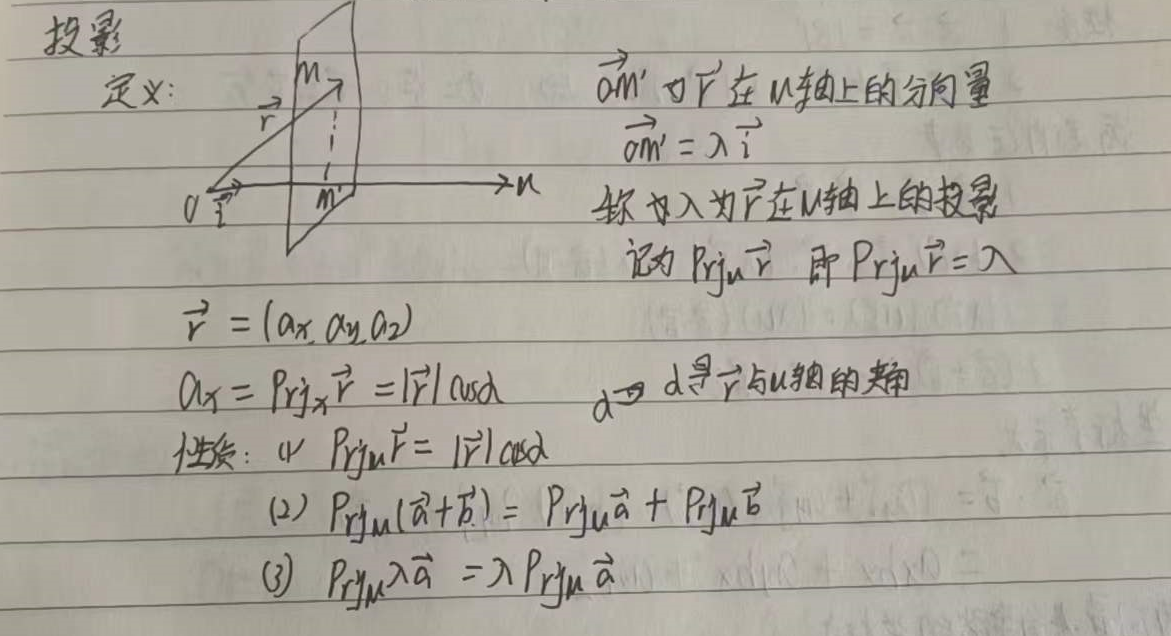 投影
定义:
M
r⃗
O
i⃗
M'
u
OM'⃗ 为 r⃗ 在 u轴上的分向量
OM'⃗ = λi⃗
称为λ为r⃗在u轴上的投影
记为 Prjᵤr⃗ 即 Prjᵤr⃗ = λ
r⃗ = (aₓ, a_y, a_z)
aₓ = Prjₓr⃗ = |r⃗|cosα α→ α是r⃗与u轴的夹角
性质: (1) Prjᵤr⃗ = |r⃗|cosα
(2) Prjᵤ(a⃗+b⃗) = Prjᵤa⃗ + Prjᵤb⃗
(3) Prjᵤλa⃗ = λPrjᵤa⃗